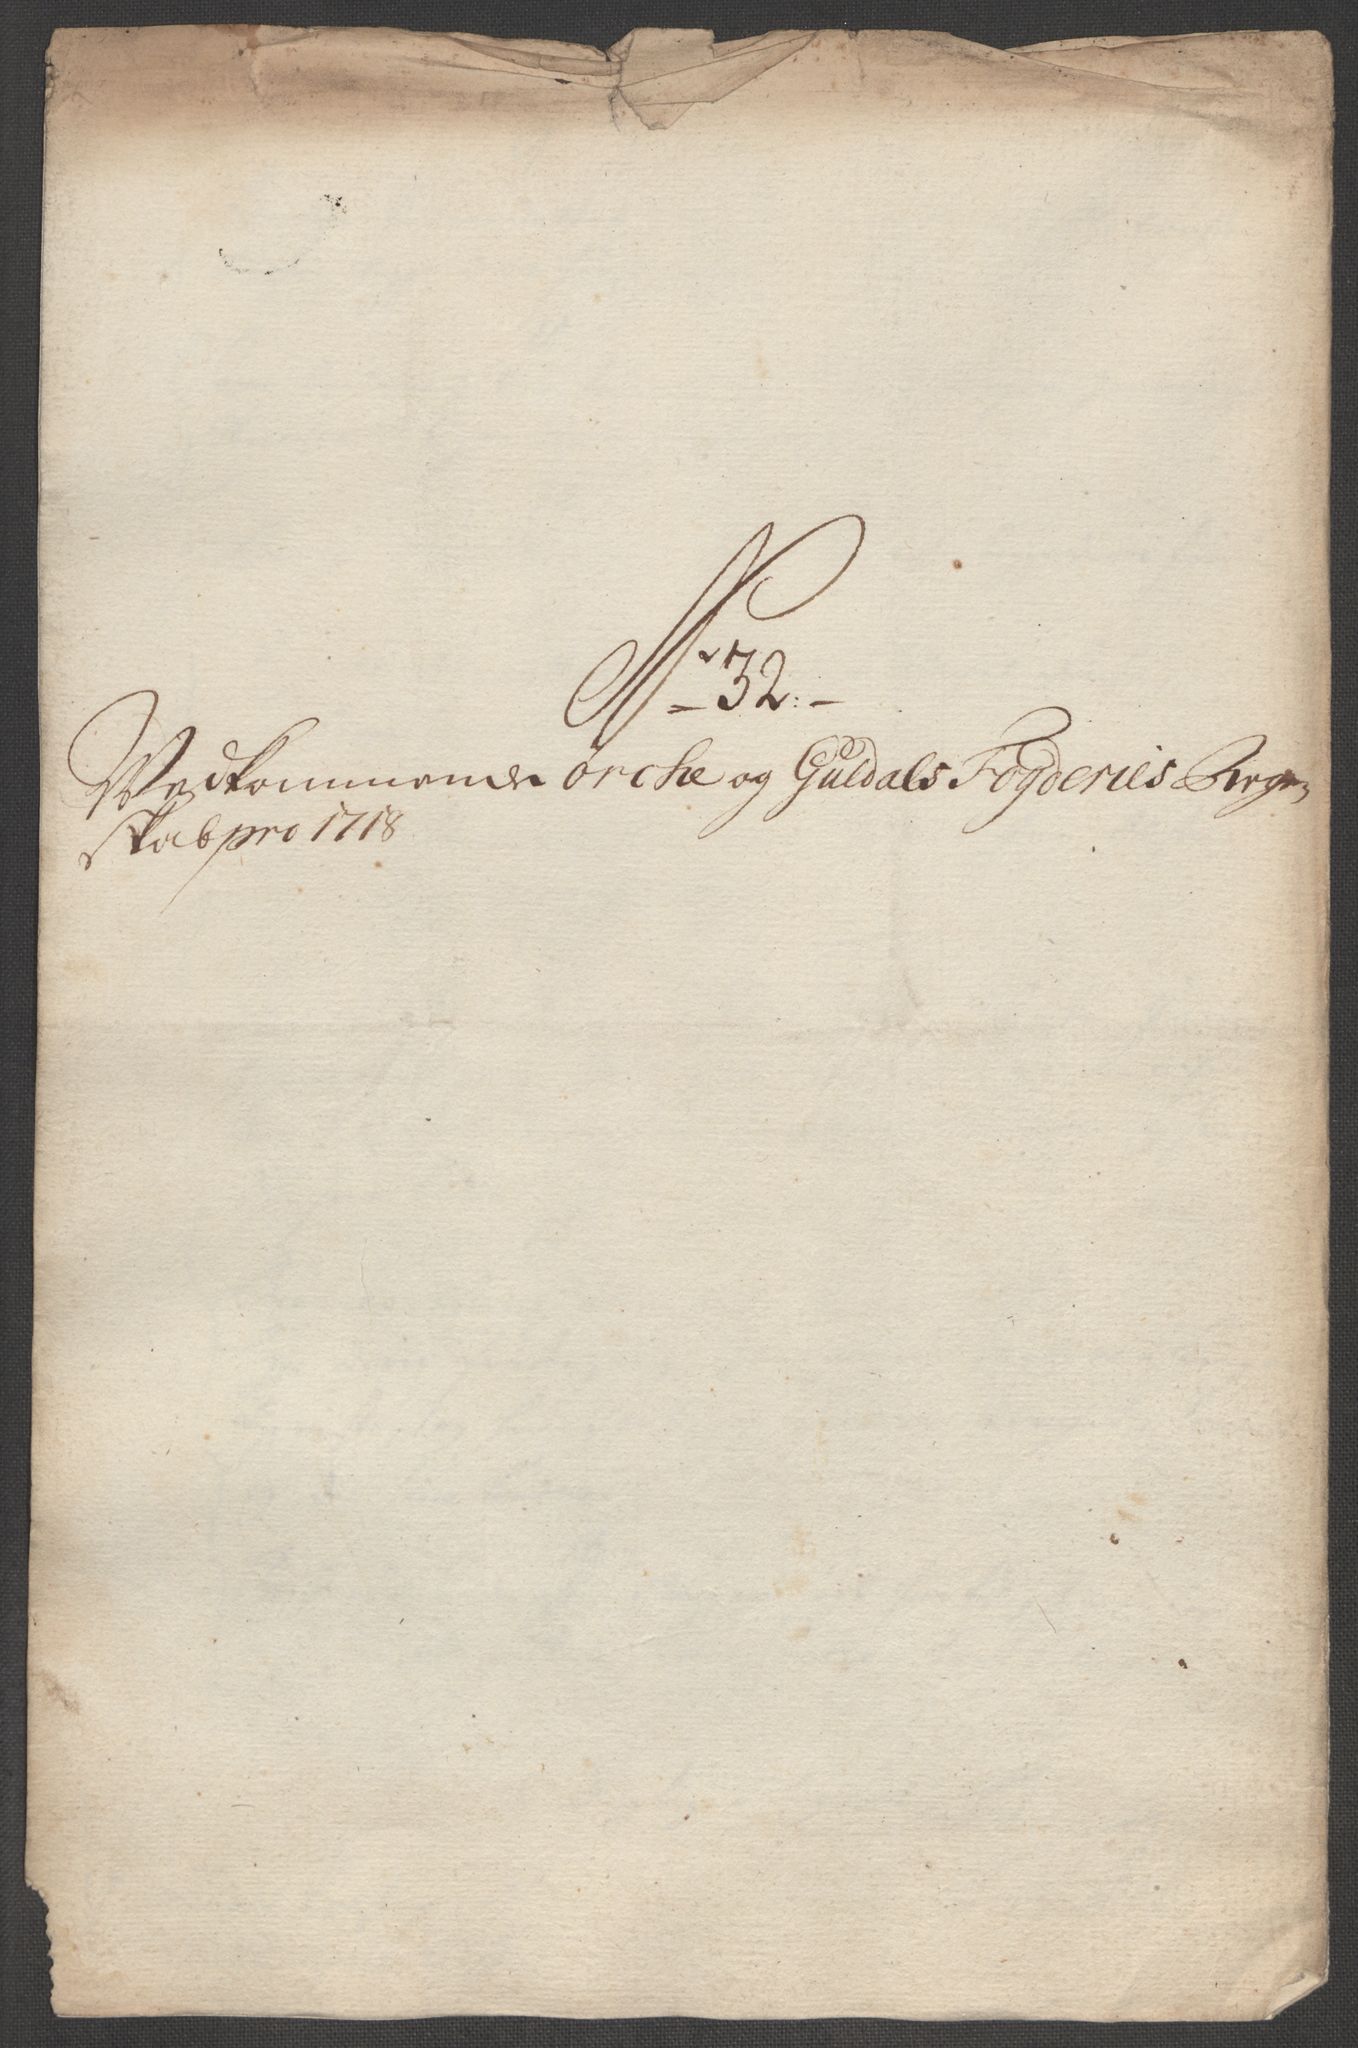 N: 32. -
Vedkommende Ørche og Guldals Fogderies Regn-
skab pro 1718